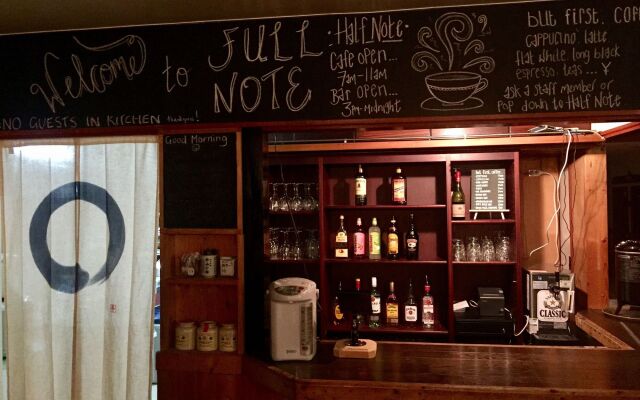 Welcome to FULL NOTE
NO GUESTS IN KITCHEN thankyou!
Half Note
Cafe open...
7am-11am
Bar open...
3pm-midnight
but first, co
cappucino, latte
flat white, long black
espresso, teas ... ¥
ask a staff member or
pop down to Half Note
Good Morning
but first, coffee
CLASSIC